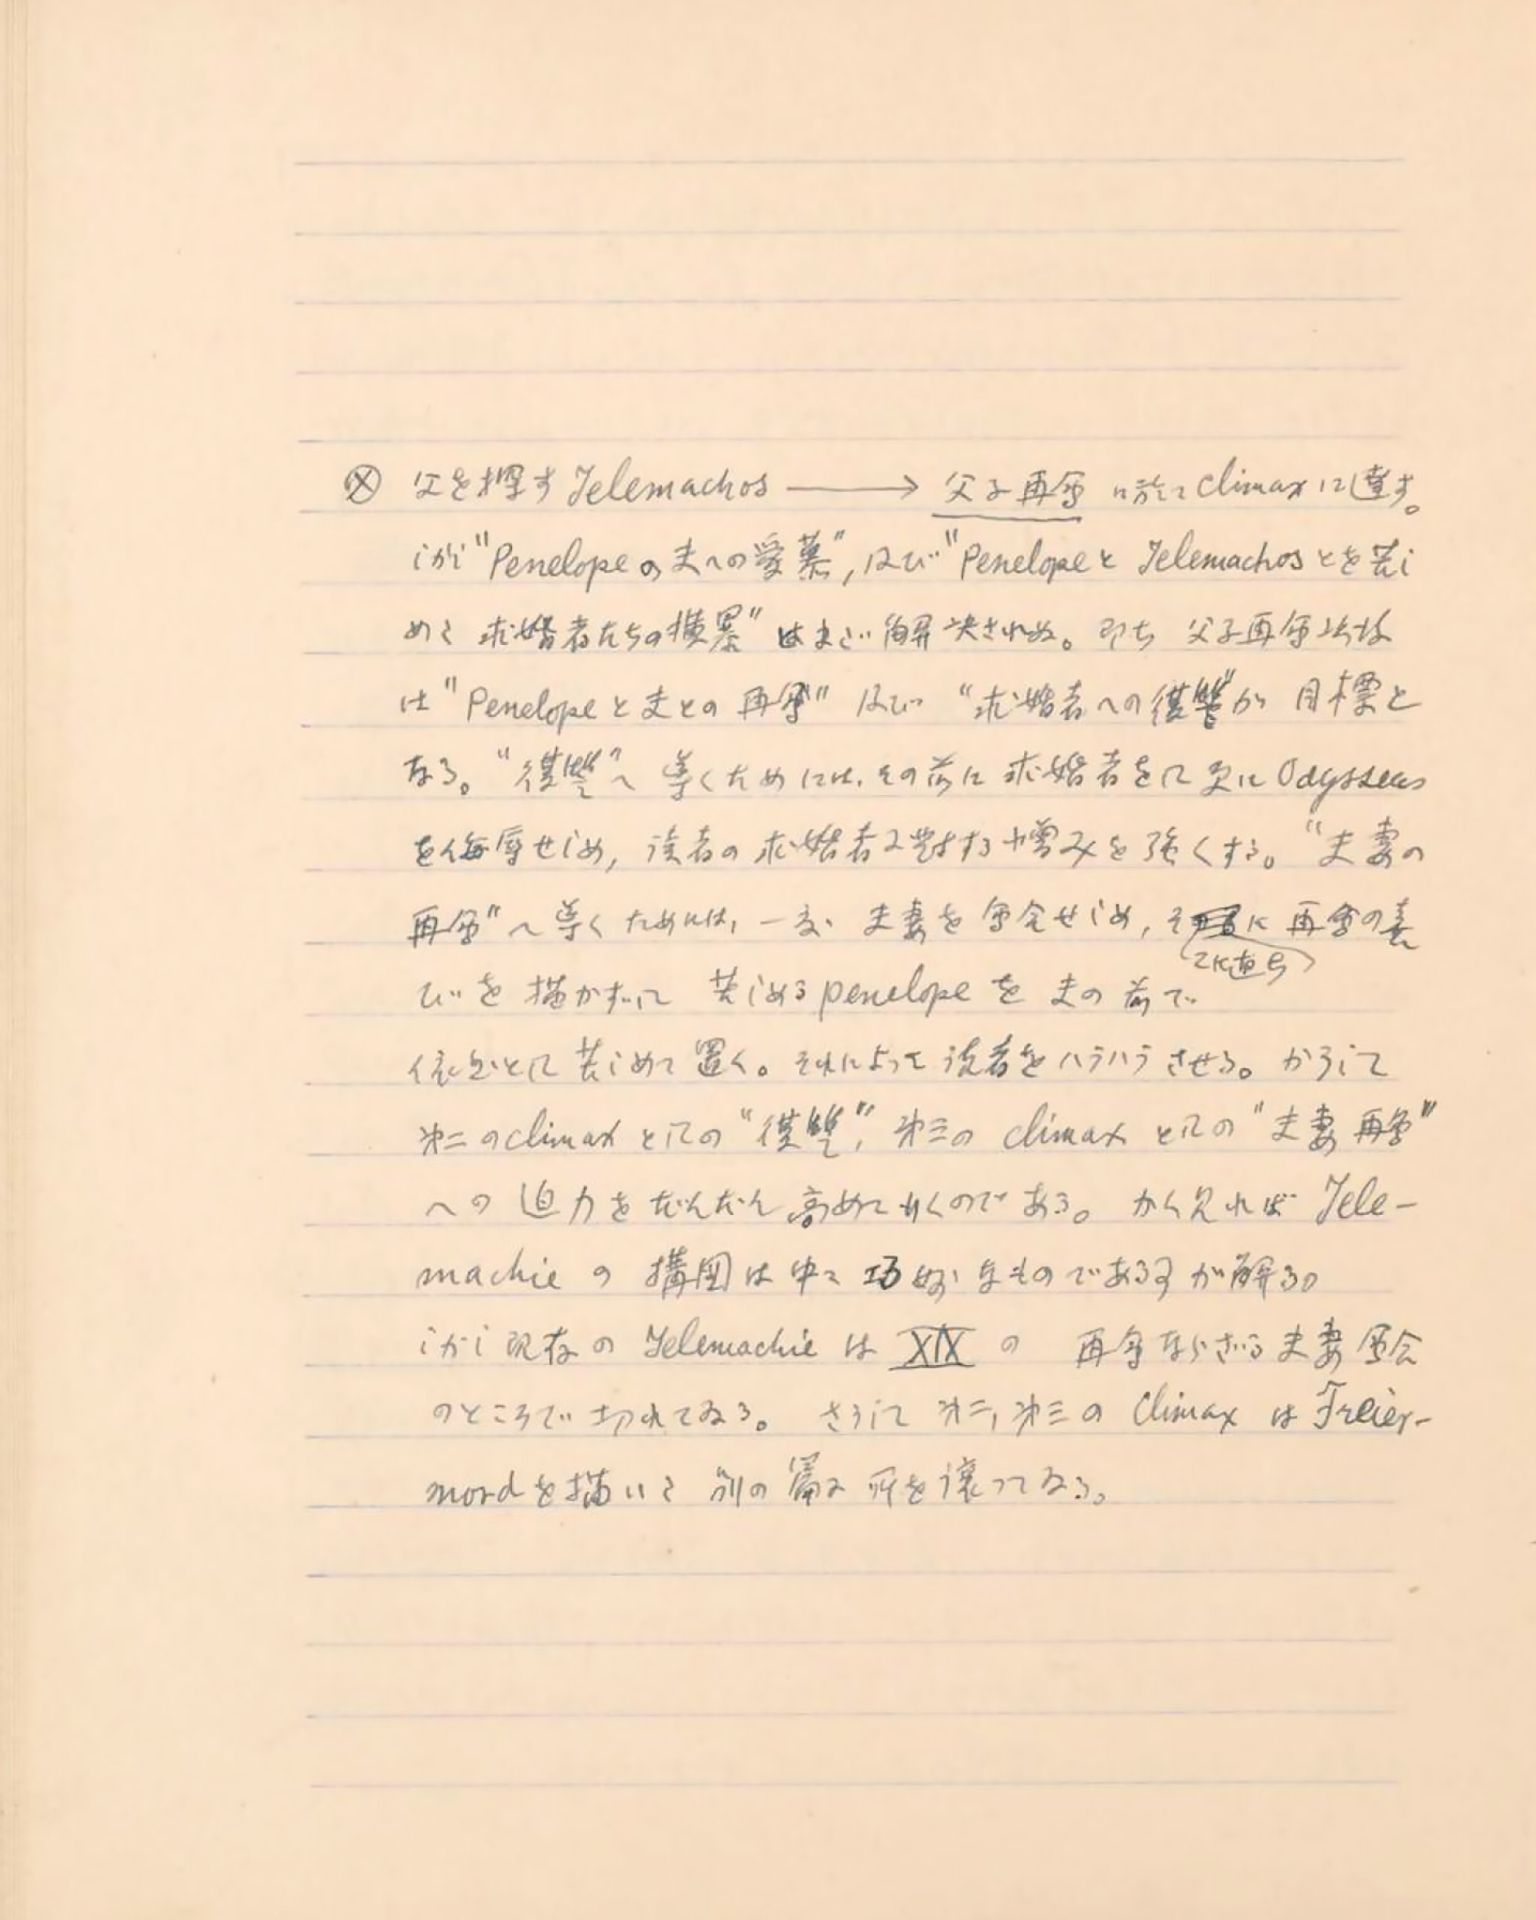 ⓧ 父を探す Telemachos ⟶ 父子再会 に於て climax に達す。
しかし "Penelope の夫への愛慕", 及び "Penelope と Telemachos とを苦し
める 求婚者たちの横暴" はまだ解決されぬ。即ち 父子再会以後
は "Penelope と夫との再会" 及び "求婚者への復讐" が 目標と
なる。"復讐" へ 導くためには、その前に 求婚者をして更に Odysseus
を侮辱せしめ, 読者の 求婚者に対する憎みを強くする。"夫妻の
再会" へ導くためには, 一度 夫妻を会合せしめ, そこに直ちに 再会の喜
びを描かずして 苦しめる penelope を 夫の前で
依然として苦しめて置く。それによって読者をハラハラさせる。かうして
第二の climax としての "復讐", 第三の climax としての "夫妻再会"
への 迫力をだんだん高めて行くのである。かく見れば Tele-
machie の 構図は中々巧妙なものである事が解る。
しかし現存の Telemachie は XIX の 再会ならざる夫妻会合
のところで切れてゐる。さうして 第二, 第三の Climax は Freier-
mord を描いた 別の篇に 所を譲ってゐる。